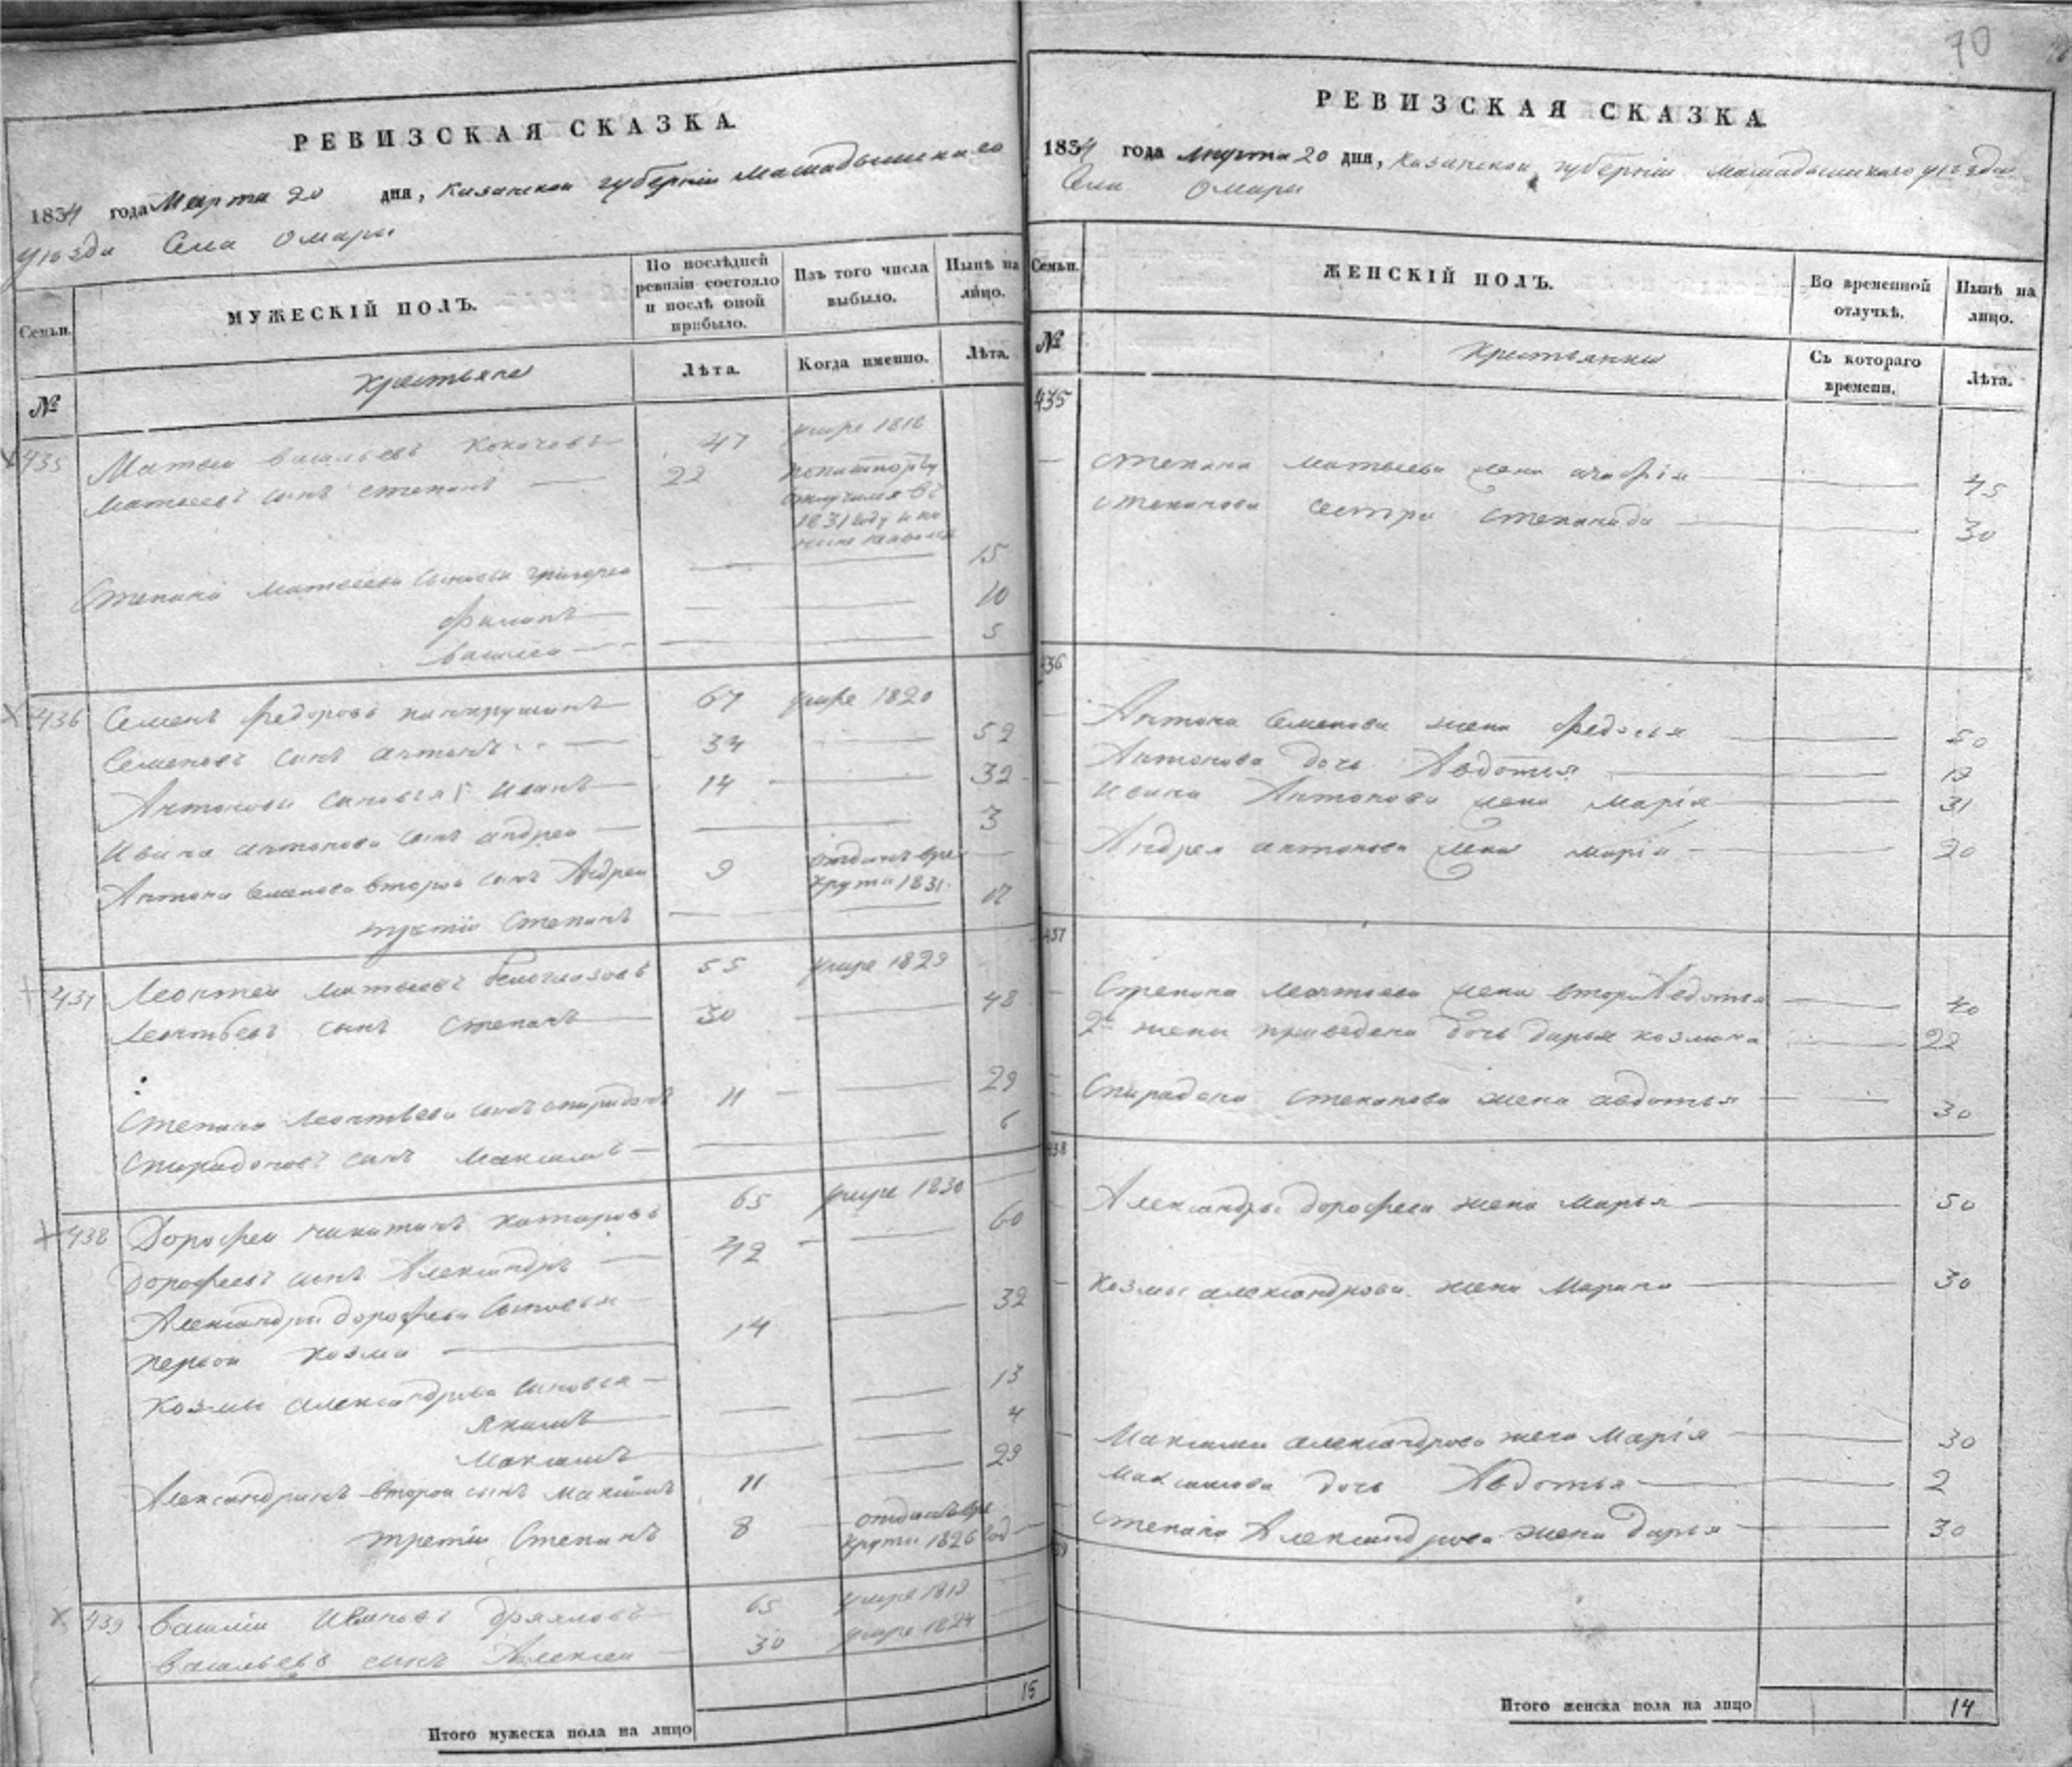 70
РЕВИЗСКАЯ СКАЗКА
1834 года Марта 20 дня, Казанской губернии Мамадышскаго
уѣзда Села Омары
Семьи. МУЖЕСКІЙ ПОЛЪ. По послѣдней ревизіи состояло и послѣ оной прибыло. Изъ того числа выбыло. Нынѣ на лицо.
№ Крестьяне Лѣта. Когда именно. Лѣта.
435 Матвеи васильевъ 47 умре 1816
Матвеевъ сынъ степанъ 22 попашпорту
отлучился въ
1831 году и по
Степана матвеева сыновья григореи 15
филипъ 10
василеи 5
436 Семенъ федоровъ 67 умре 1820
Семеновъ сынъ антонъ 34 52
Антоновы сыновья 1 иванъ 14 32
Ивана антонова сынъ андреи 3
Антона семенова второи сынъ Андреи 9 отданъ вре
круты 1831
третіи Степанъ 17
437 Леонтеи матвеевъ белоглазовъ 55 умре 1829
Леонтьевъ сынъ Степанъ 30 48
Степана леонтьева сынъ спиридонъ 11 29
Спиридоновъ сынъ Максимъ 6
438 Дорофеи никитинъ 65 умре 1830
Дорофеевъ сынъ Александръ 42 60
Александры дорофеева сыновья
первои козма 14 32
Козмы александрова сыновья
якимъ 13
Максимъ 4
Александринъ второи сынъ максимъ 11 29
третіи Степанъ 8 отданъ вре
круты 1826 год
439 Василіи Ивановъ 65 умре 1819
Васильевъ сынъ Алексеи 30 умре 1824
Итого мужеска пола на лицо 15
РЕВИЗСКАЯ СКАЗКА
1834 года марта 20 дня, Казанской губерніи мамадышскаго уѣзда
Села Омары
Семьи. ЖЕНСКІЙ ПОЛЪ. Во временной отлучкѣ. Нынѣ на лицо.
№ Крестьянки Съ котораго времени. Лѣта.
435
Степана матвеева жена 45
Степанова сестра степанида 30
436
Антона Семенова жена федосья 50
Антонова дочь Авдотья 19
Ивана Антонова жена марія 31
Андрея антонова жена марія 20
437
Степана леонтьева жена втора Авдотья 40
2й жены приведена дочь дарья козмина 22
Спирадона степанова жена авдотья 30
438
Александры дорофеева жена Марья 50
Козмы александрова жена Марина 30
Максима александрова жена Марія 30
Максимова дочь Авдотья 2
Степана Александрова жена дарья 30
Итого женска пола на лицо 14